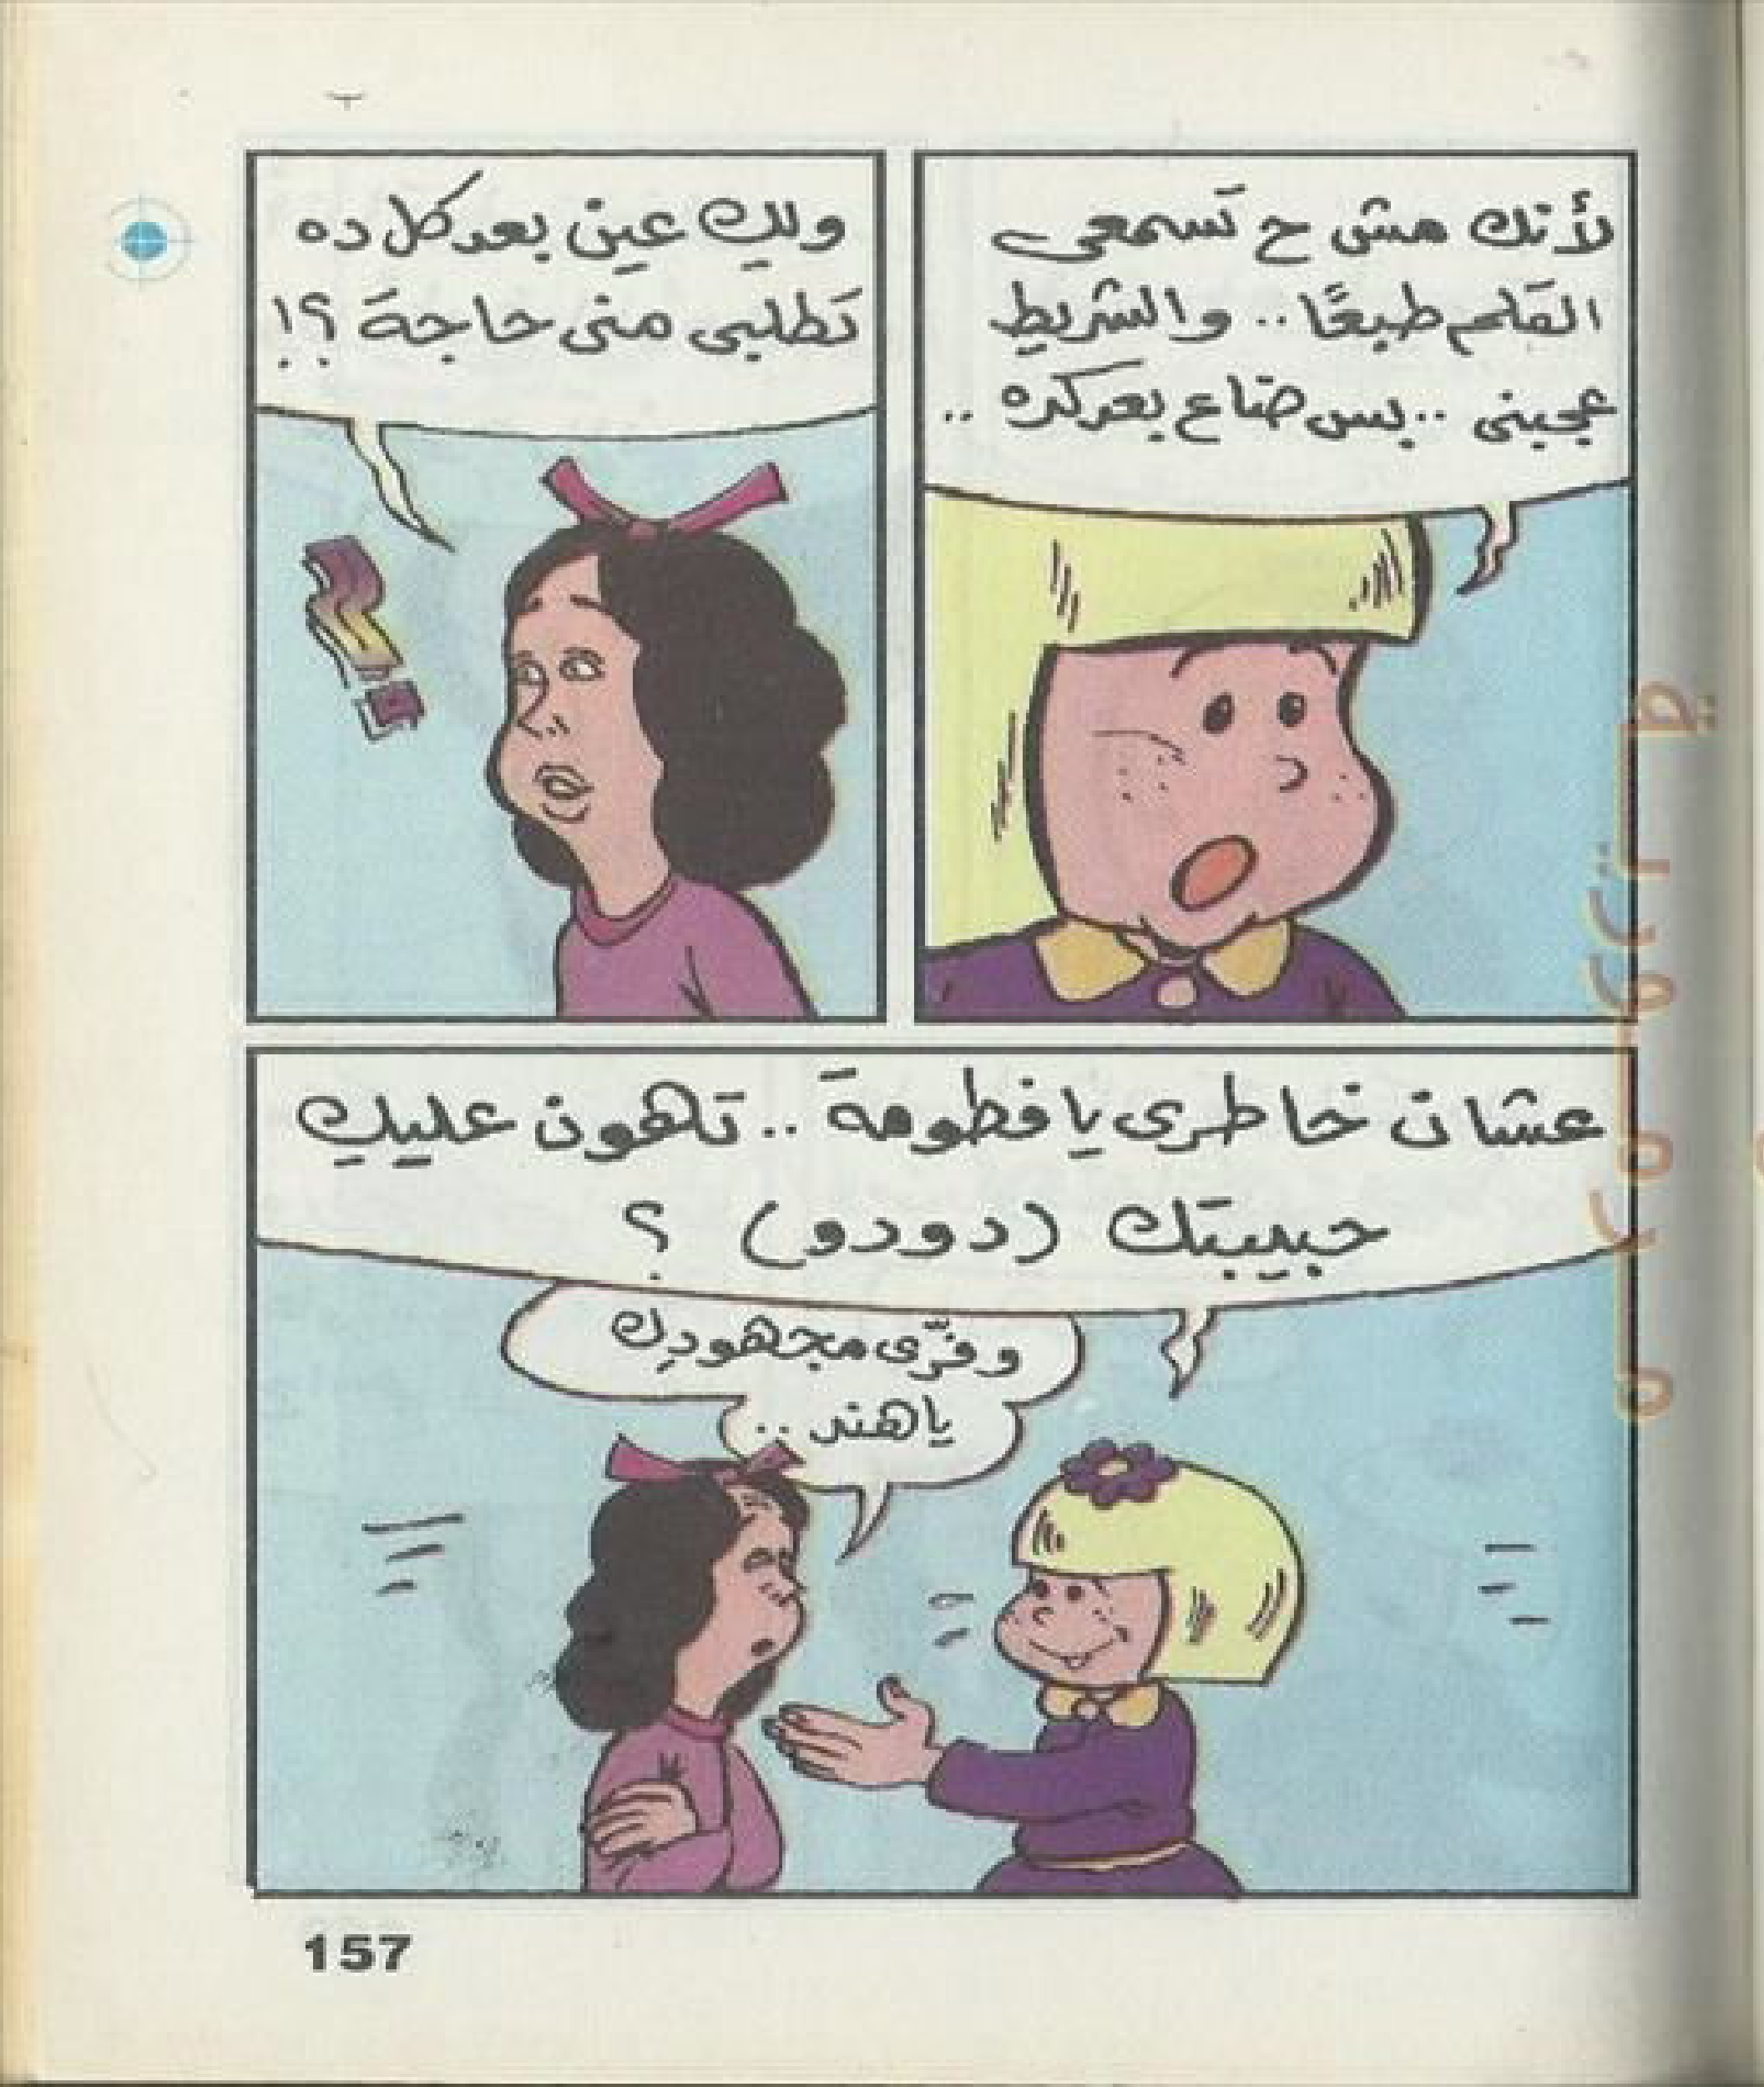 لأنك مش ح تسمعى
القلم طبعًا.. والشريط
عجبنى.. بس ضاع بعد كده..
ولك عين بعد كل ده
تطلبى منى حاجة ؟!
عشان خاطرى يا فطومة.. تهون عليك
حبيبتك (دودو) ؟
وفّرى مجهودك
يا هند..
157